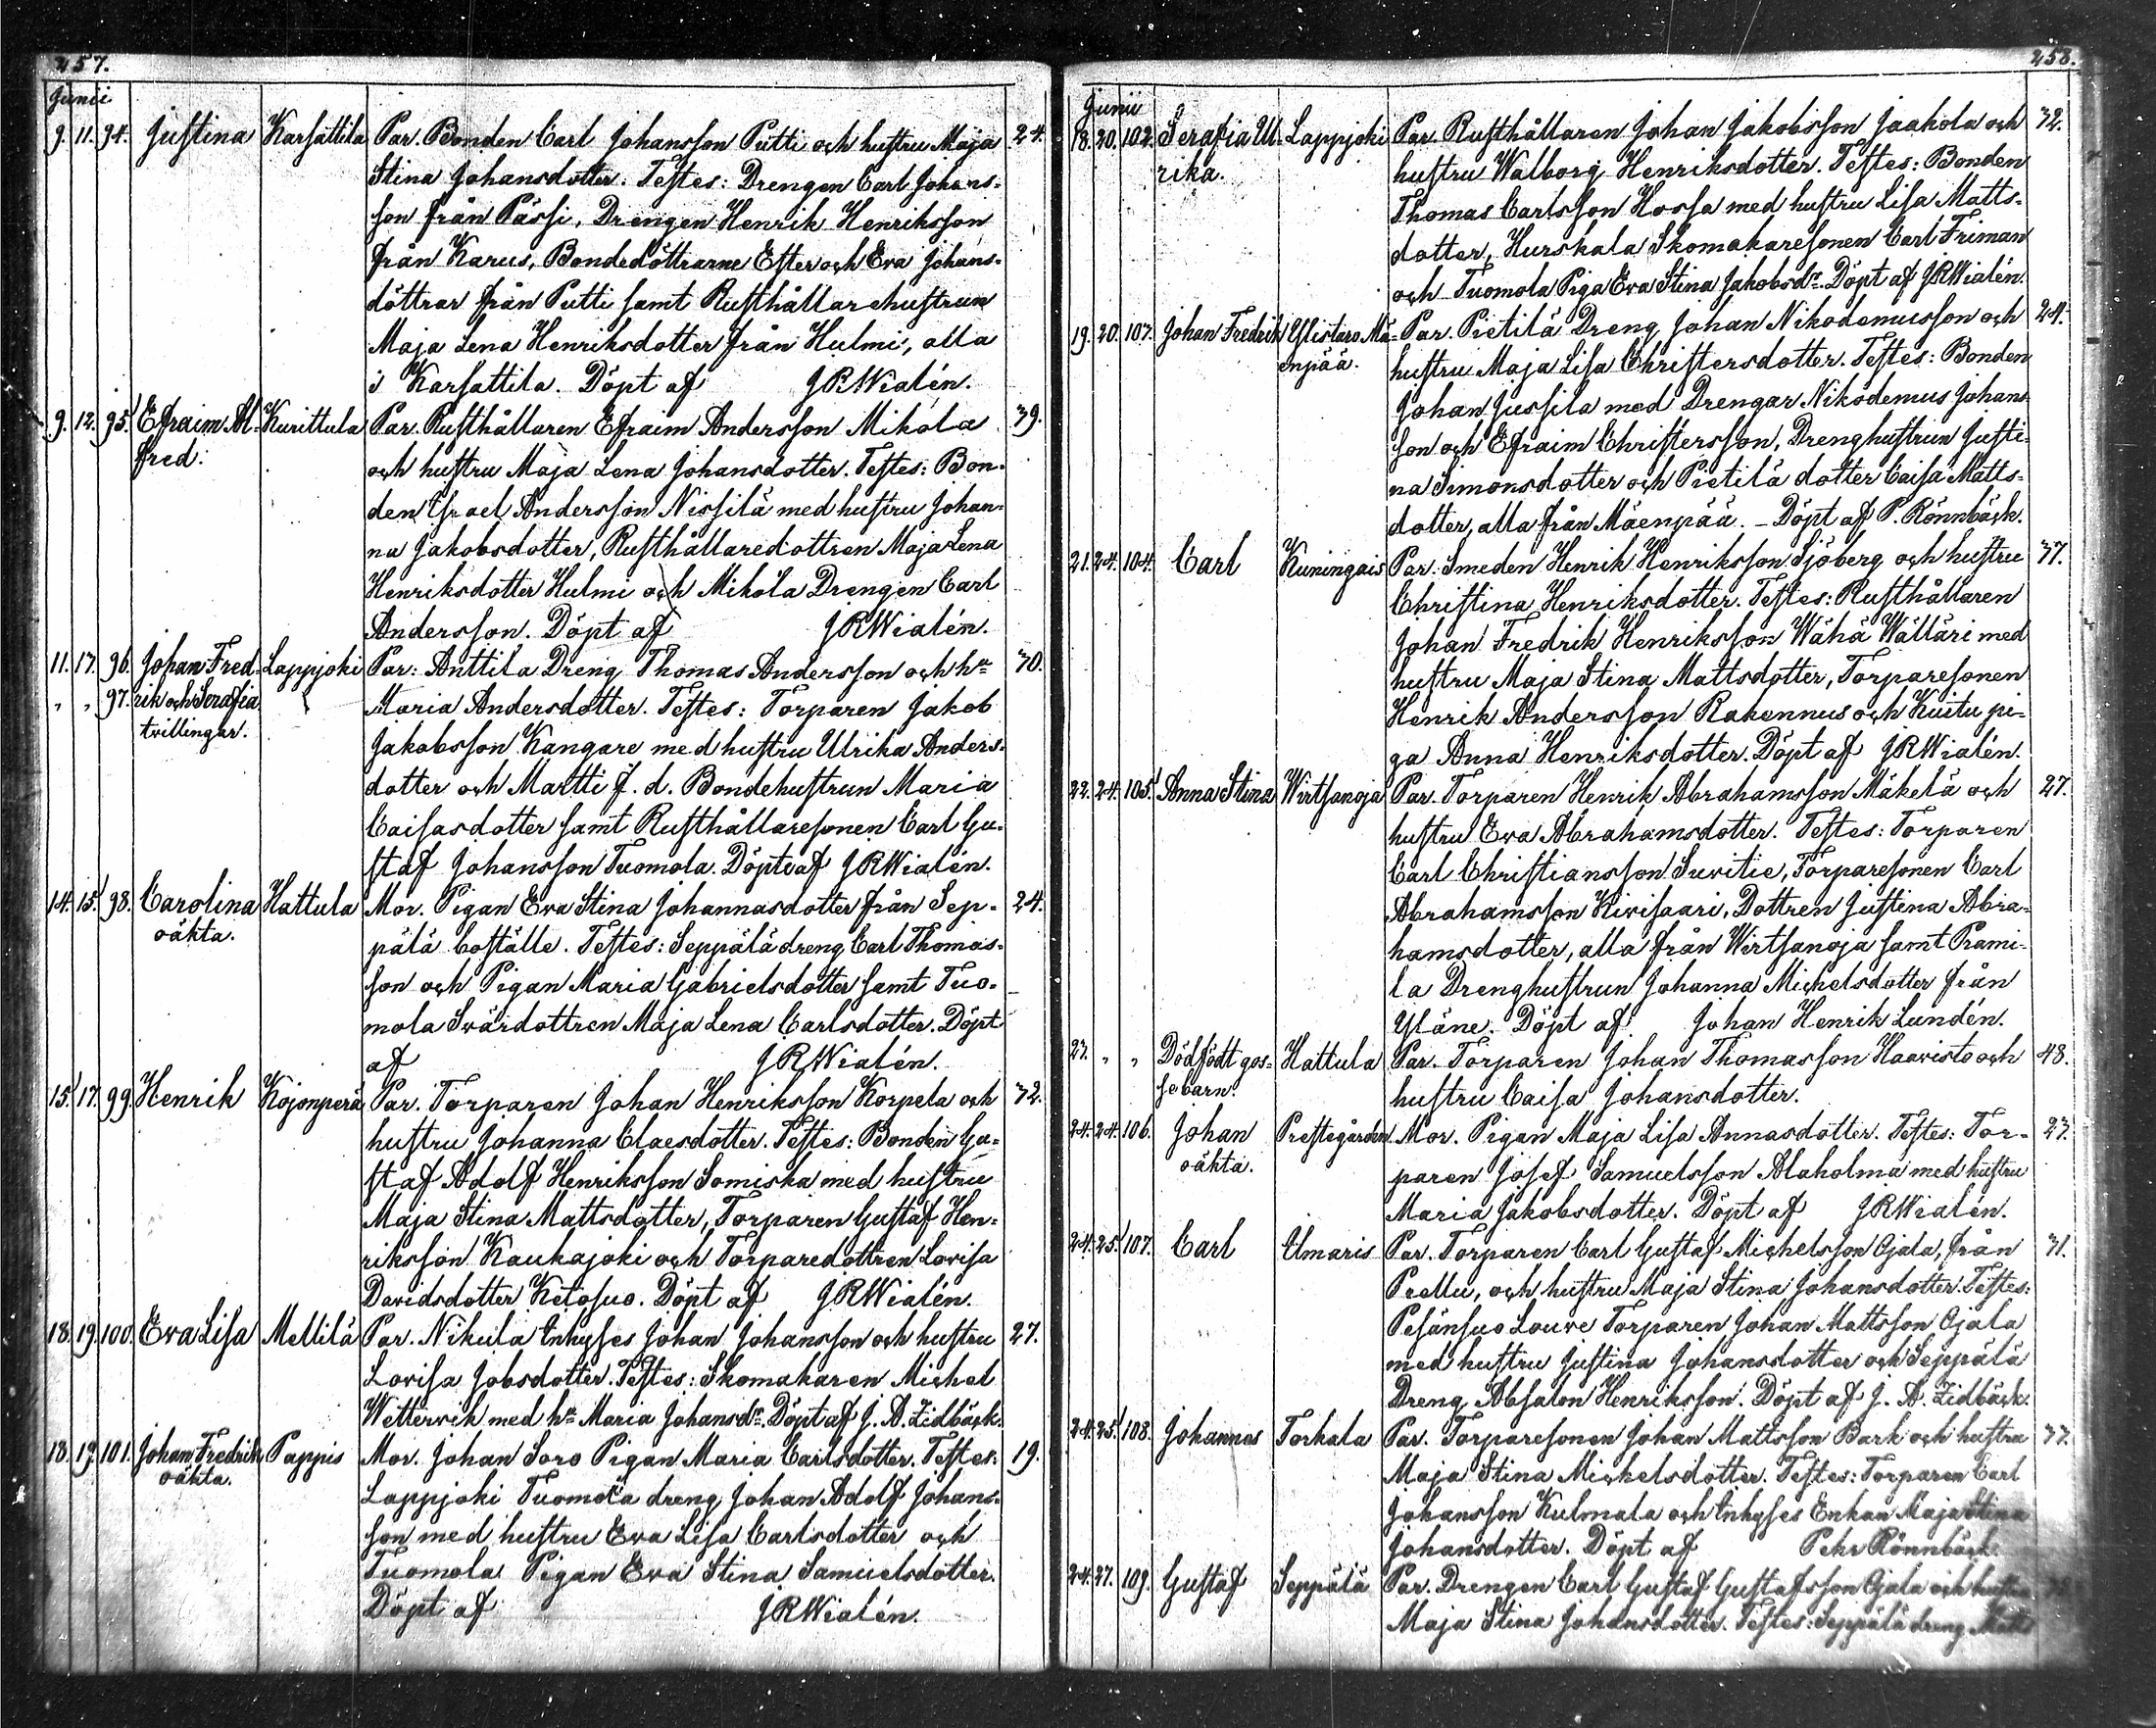 257.
Junii
9. 11. 94. Justina Karsattila Par. Bonden Carl Johansson Putti och hustru Maja 24.
Stina Johansdotter. Testes: Drengen Carl Johans-
son från Pässi, Drengen Henrik Henriksson
från Karus, Bondedöttrarne Ester och Eva Johans-
döttrar från Putti samt Rusthållarehustrun
Maja Lena Henriksdotter från Hulmi, alla
i Karsattila. Döpt af JRWialén.
9. 12. 95. Efraim Al- Kurittula Par. Rusthållaren Efraim Andersson Mikola 39.
fred. och hustru Maja Lena Johansdotter. Testes: Bon-
den Israel Andersson Nissilä med hustru Johan-
na Jakobsdotter, Rusthållaredottren Maja Lena
Henriksdotter Hulmi och Mikola Drengen Carl
Andersson. Döpt af JRWialén.
11. 17. 96. Johan Fred- Lappjoki Par: Anttila Dreng Thomas Andersson och hu 30.
" " 97. rik och Serafia Maria Andersdotter. Testes: Torparen Jakob
tvillingar. Jakobsson Kangare med hustru Ulrika Anders-
dotter och Martti f. d. Bondehustrun Maria
Caisasdotter samt Rusthållaresonen Carl Gu-
staf Johansson Tuomola. Döpte af JRWialén.
14. 15. 98. Carolina Hattula Mor. Pigan Eva Stina Johannasdotter från Sep- 24.
oäkta. pälä boställe. Testes: Seppälä dreng Carl Thomas-
son och Pigan Maria Gabrielsdotter samt Tuo-
mola Svärdottren Maja Lena Carlsdotter. Döpt
af JRWialén.
15. 17. 99. Henrik Kojonperä Par. Torparen Johan Henriksson Korpela och 32.
hustru Johanna Claesdotter. Testes: Bonden Gu-
staf Adolf Henriksson Somiska med hustru
Maja Stina Mattsdotter, Torparen Gustaf Hen-
riksson Kaukajoki och Torparedottren Lovisa
Davidsdotter Ketosuo. Döpt af JRWialén.
18. 19. 100. Eva Lisa Mellilä Par. Nikula Inhyses Johan Johansson och hustru 27.
Lovisa Jobsdotter. Testes: Skomakaren Michel
Wettervik med hu Maria Johansdr. Döpt af J. A. Lidbäck.
18. 19. 101. Johan Fredrik Pappis Mor. Johan Soro Pigan Maria Carlsdotter. Testes: 19.
oäkta. Lappjoki Tuomola dreng Johan Adolf Johans-
son med hustru Eva Lisa Carlsdotter och
Tuomola Pigan Eva Stina Samuelsdotter.
Döpt af JRWialén.
258.
Junii
18. 20. 102. Serafia Ul- Lappjoki Par. Rusthållaren Johan Jakobsson Jaakola och 32.
rika. hustru Walborg Henriksdotter. Testes: Bonden
Thomas Carlsson Hossa med hustru Lisa Matts-
dotter, Hurskala Skomakaresonen Carl Friman
och Tuomola Piga Eva Stina Jakobsdr. Döpt af JRWialén.
19. 20. 103. Johan Fredrik Ylistaro Mä- Par. Pietilä Dreng Johan Nikodemusson och 24.
enpää. hustru Maja Lisa Christersdotter. Testes: Bonden
Johan Jussila med Drengar Nikodemus Johans-
son och Efraim Christersson, Drenghustrun Justi-
na Simonsdotter och Pietilä dotter Caisa Matts-
dotter, alla från Mäenpää. - Döpt af P. Rönnbäck.
21. 24. 104. Carl Kuningais Par. Smeden Henrik Henriksson Sjöberg och hustru 37.
Christina Henriksdotter. Testes: Rusthållaren
Johan Fredrik Henriksson Wähä Wälläri med
hustru Maja Stina Mattsdotter, Torparesonen
Henrik Andersson Rakennus och Kuitu pi-
ga Anna Henriksdotter. Döpt af JRWialén.
22. 24. 105. Anna Stina Wirtsanoja Par. Torparen Henrik Abrahamsson Mäkelä och 27.
hustru Eva Abrahamsdotter. Testes: Torparen
Carl Christiansson Suvitie, Torparesonen Carl
Abrahamsson Kivisaari, Dottren Justina Abra-
hamsdotter, alla från Wirtsanoja samt Prami-
la Drenghustrun Johanna Michelsdotter från
Yläne. Döpt af Johan Henrik Lundén.
23. " " Dödfödt gos- Hattula Par. Torparen Johan Thomasson Haavisto och 48.
sebarn. hustru Caisa Johansdotter.
24. 24. 106. Johan Prestegården Mor. Pigan Maja Lisa Annasdotter. Testes: Tor- 23.
oäkta. paren Josef Samuelsson Alaholma med hustru
Maria Jakobsdotter. Döpt af JRWialén.
24. 25. 107. Carl Ilmaris Par. Torparen Carl Gustaf Michelsson Ojala, från 31.
Prellu, och hustru Maja Stina Johansdotter. Testes:
Pesänsuo Louve Torparen Johan Mattsson Ojala
med hustru Justina Johansdotter och Seppälä
Dreng Absalon Henriksson. Döpt af J. A. Lidbäck.
24. 25. 108. Johannes Torkala Par. Torparesonen Johan Mattsson Bark och hustru 37.
Maja Stina Michelsdotter. Testes: Torparen Carl
Johansson Kulmala och Inhyses Enkan Maja Stina
Johansdotter. Döpt af Pehr Rönnbäck.
24. 27. 109. Gustaf Seppälä Par. Drengen Carl Gustaf Gustafsson Ojala och hustru
Maja Stina Johansdotter. Testes: Seppälä dreng Matts